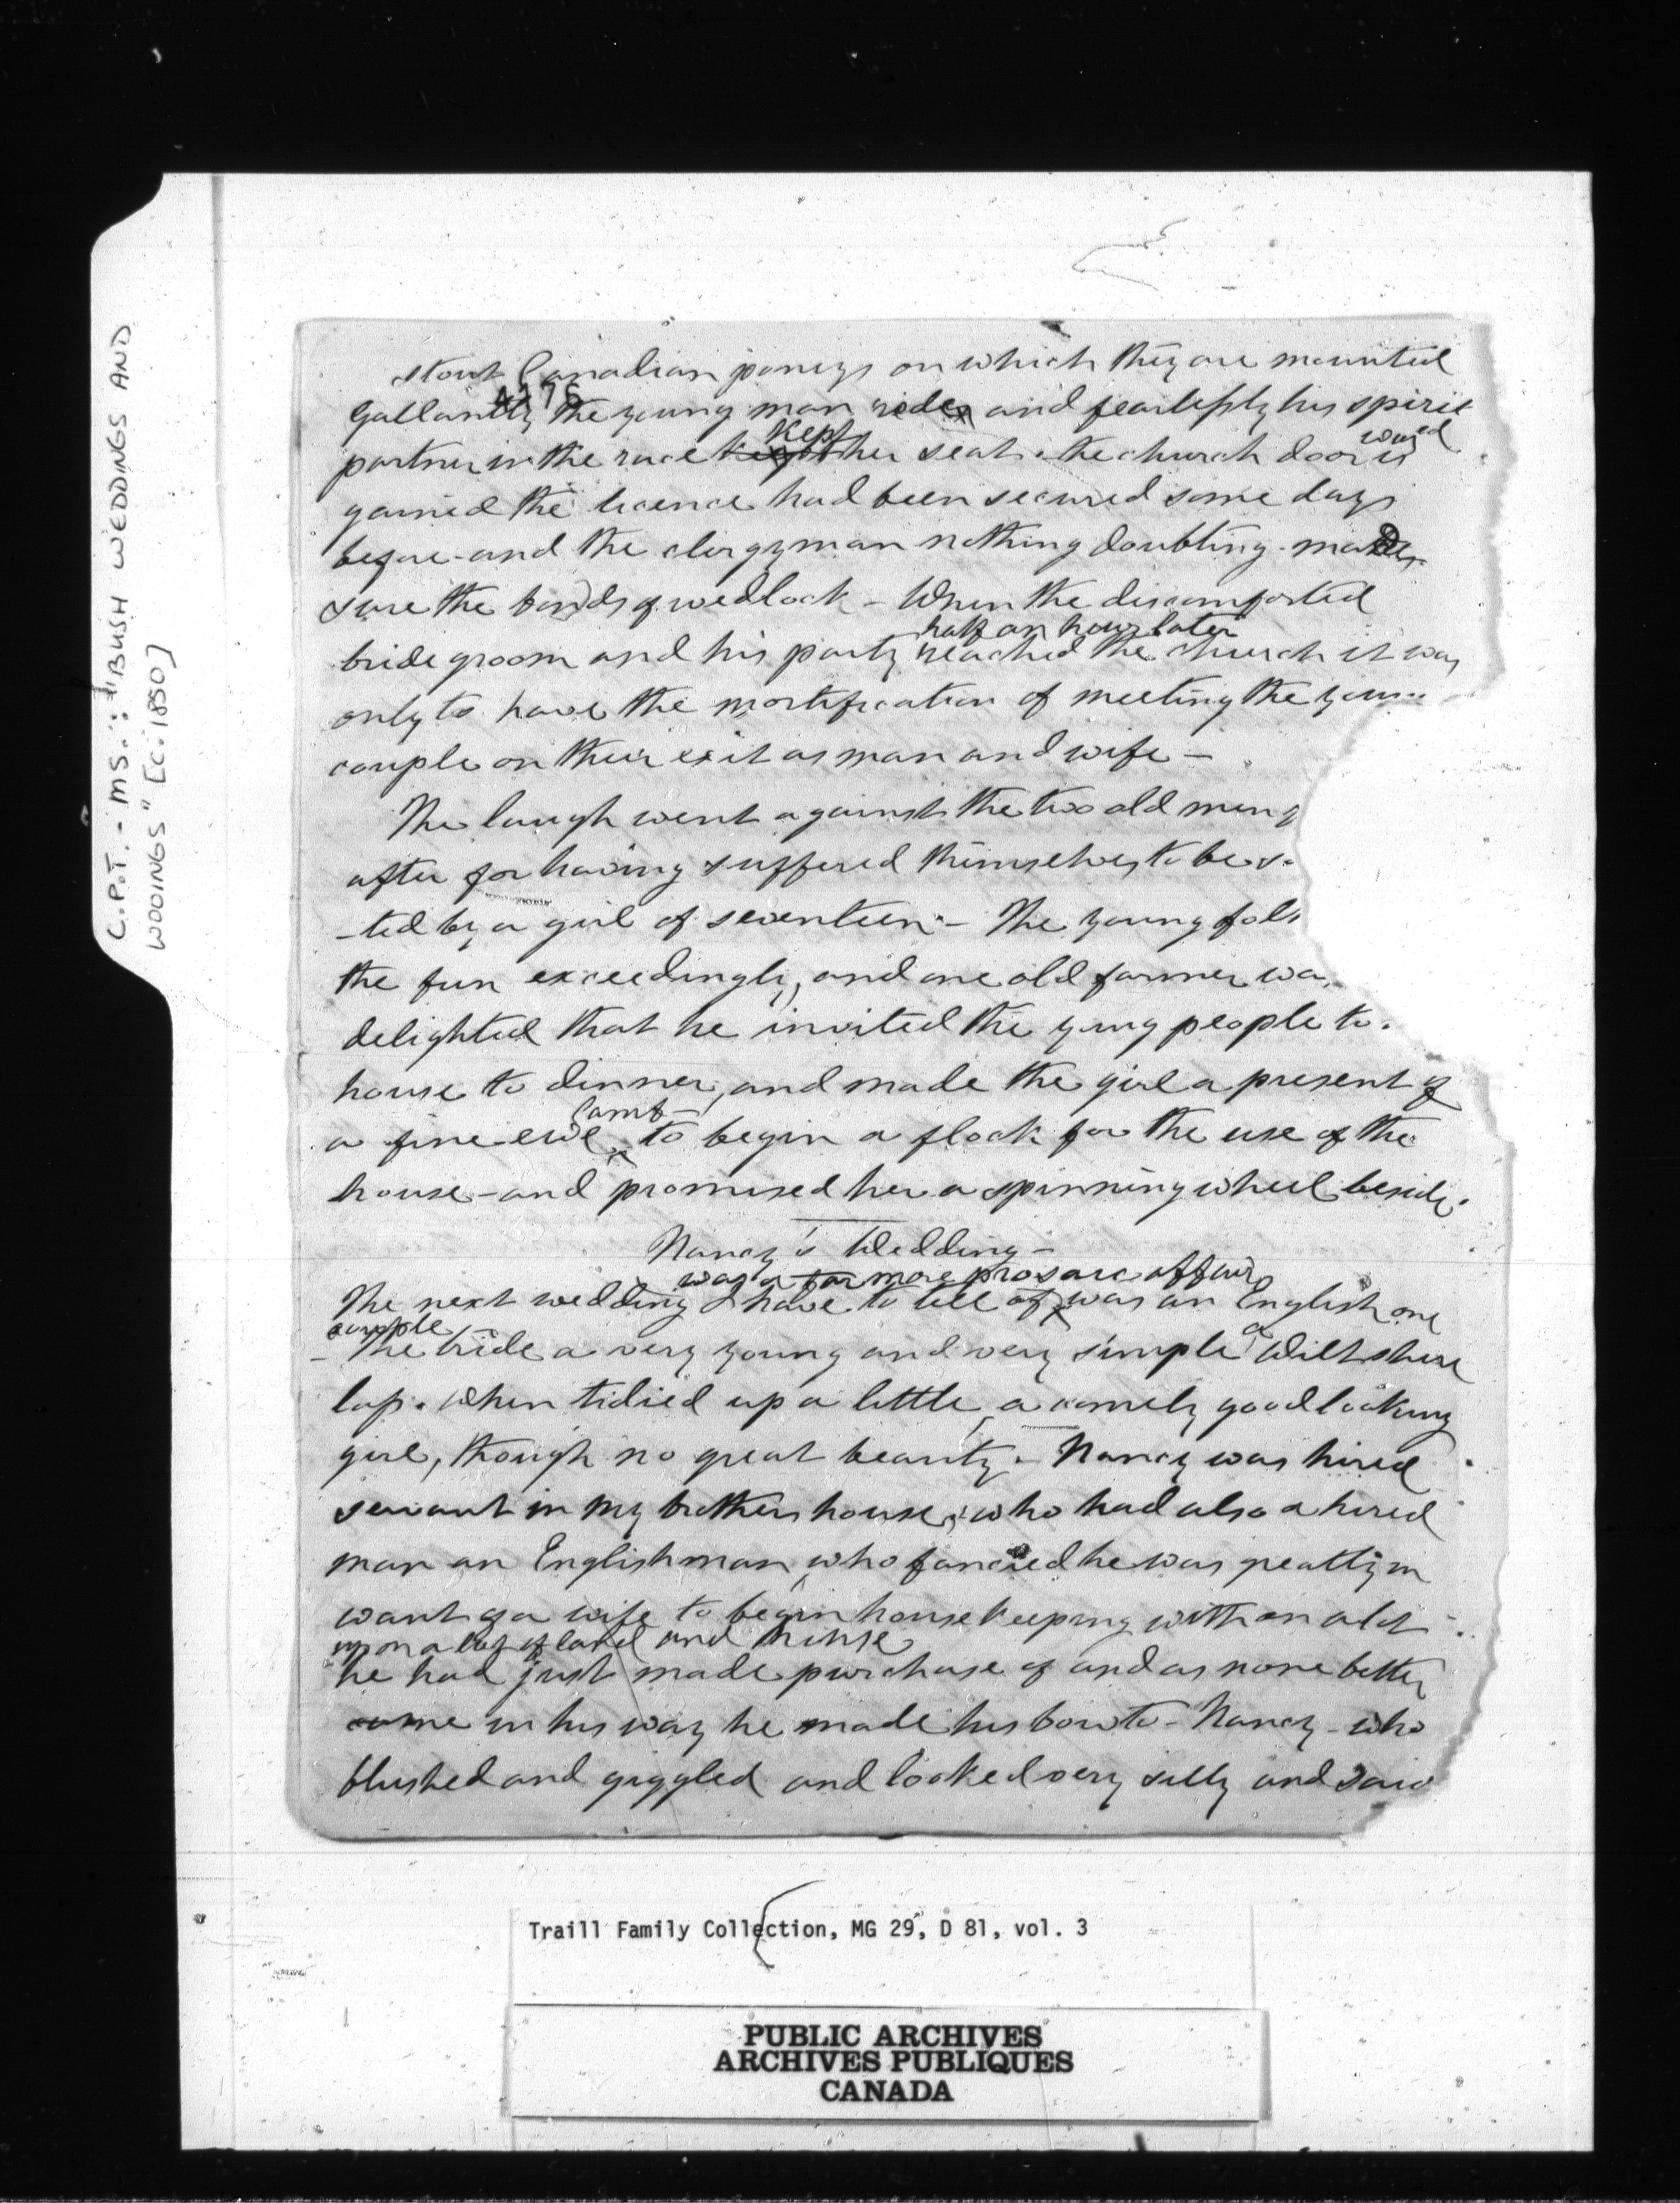 C.P.T. - MS.: "BUSH WEDDINGS AND
WOOINGS" [c. 1880]
stout Canadian poneys on which they are mounted
4276
Gallantly the young man rides and fearlessly his spirit
kept was ed
partner in the race kept her seat. the church door is
gained the licence had been secured some days
before - and the clergyman nothing doubting - made
sure the bonds of wedlock - When the discomforted
half an hour later
bridegroom and his party reached the church it was
only to have the mortification of meeting the youn
couple on their exit as man and wife -
The laugh went against the two old men
after for having suffered themselves to be
-ted by a girl of seventeen - The young folk
the fun exceedingly, and one old farmer wa
delighted that he invited the yung people to
house to dinner, and made the girl a present of
lamb -
a fine ewe to begin a flock for the use of the
house - and promised her a spinning wheel beside.
Nancy's Wedding -
was a far more prosaic affair
The next wedding I have to tell of was an English one
couple a
- The bride a very young and very simple Wiltshire
lass. When tidied up a little, a comely good looking
girl, though no great beauty - Nancy was hired
servant in my brothers house, who had also a hired
man an Englishman, who fancied he was greatly in
want of a wife to begin housekeeping with on a lot
upon a lot of land and house
he had just made purchase of and as none better
came in his way he made his bow to - Nancy - who
blushed and giggled and looked very silly and said
Traill Family Collection, MG 29, D 81, vol. 3
PUBLIC ARCHIVES
ARCHIVES PUBLIQUES
CANADA